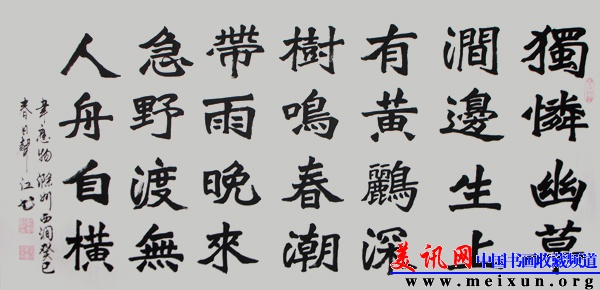 獨憐幽草
澗邊生上
有黃鸝深
樹鳴春潮
帶雨晚來
急野渡無
人舟自橫
韋應物滁州西澗癸巳
春月聲江书
美讯网 中国书画收藏频道
www.meixun.org